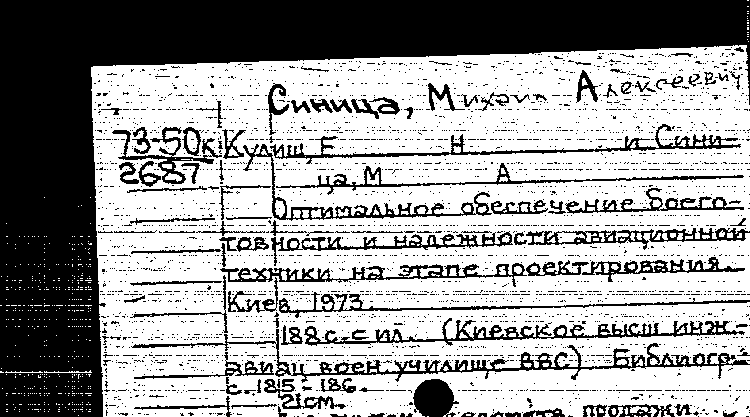 Синица, Михаил Алексеевич
73-50к Кулиш, Е Н и Сини-
2687 ца, М А
Оптимальное обеспечение боего-
товности и надежности авиационной
техники на этапе проектирования.
Киев, 1973.
188 с. с ил. (Киевское высш инж.-
авиац воен. училище ВВС) Библиогр.:
с. 185-186.
21см.
продажи.